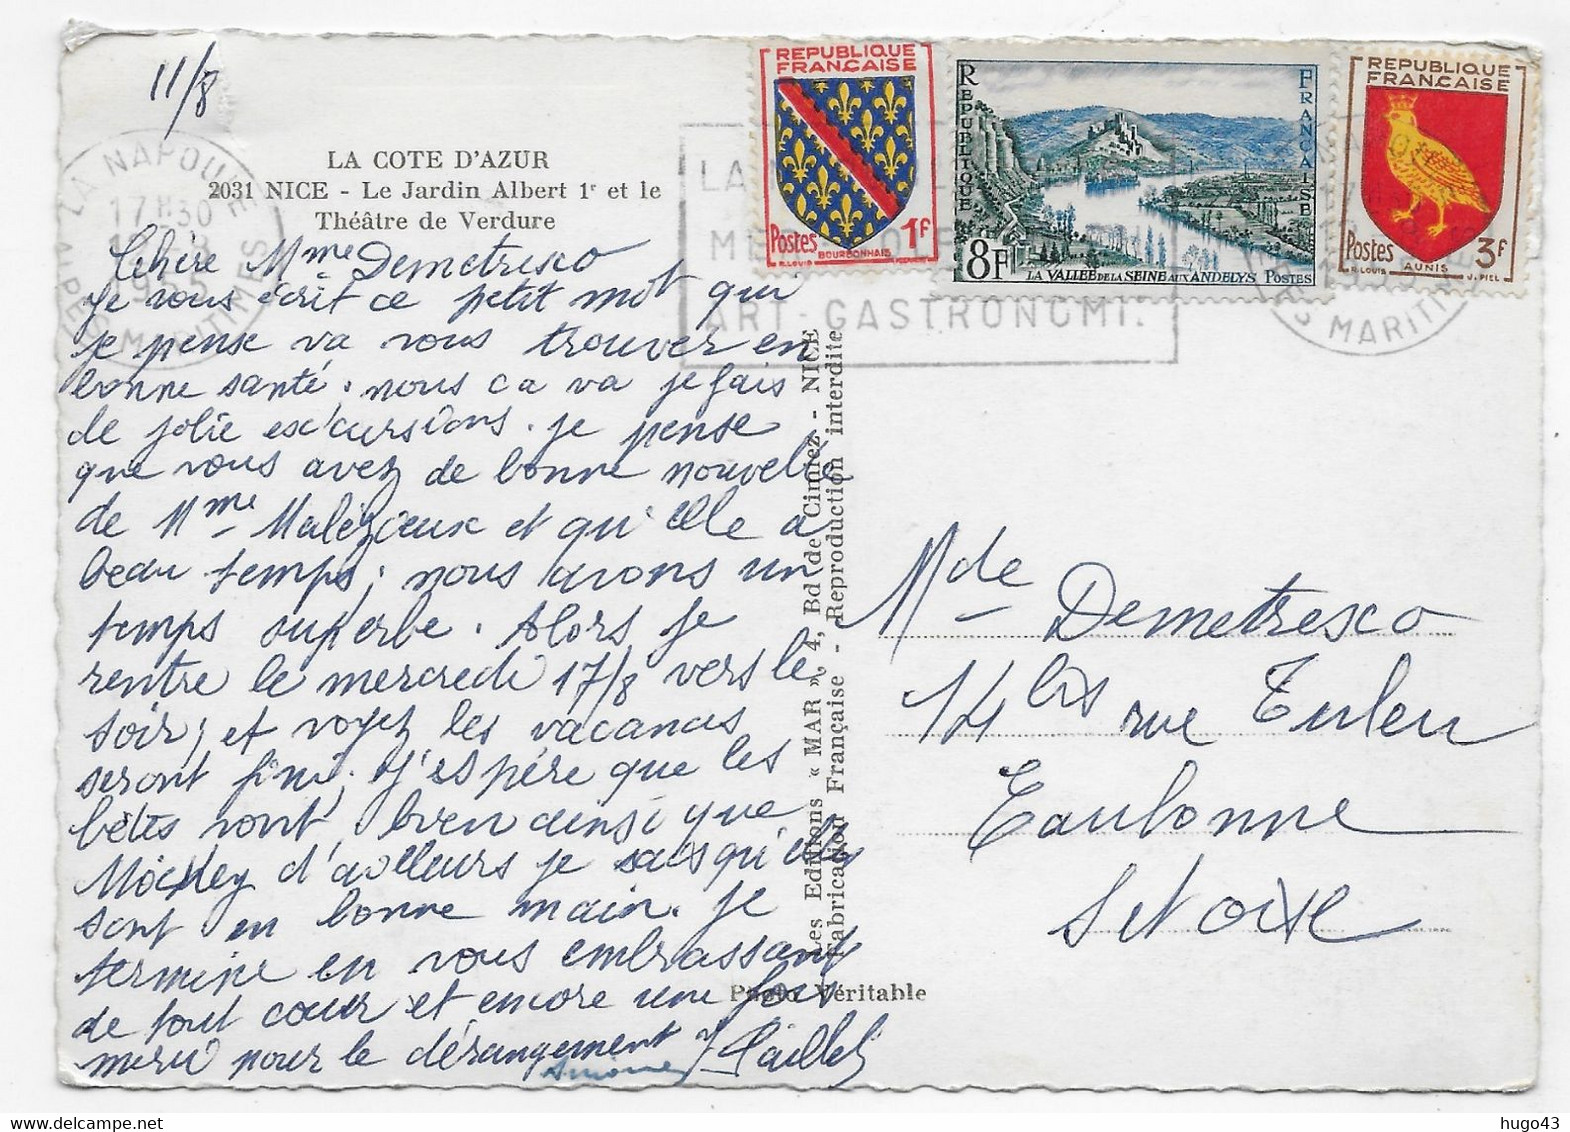 11/8
LA COTE D'AZUR
2031 NICE - Le Jardin Albert 1r et le
Théâtre de Verdure
Chère Mme Demetresco
Je vous écrit ce petit mot qui
je pense va vous trouver en
bonne santé. nous ca va je fais
de jolie excursions. je pense
que vous avez de bonne nouvelle
de Mme Malézieux et qu'elle a
beau temps; nous avons un
temps superbe. Alors je
rentre le mercredi 17/8 vers le
soir, et voyez les vacances
seront fini. J'espère que les
bêtes vont bien ainsi que
Mickey d'ailleurs je sais qu'elles
sont en bonne main. Je
termine en vous embrassant
de tout coeur et encore une fois
merci pour le dérangement
Simone
REPUBLIQUE
FRANÇAISE
1F
Postes
BOURBONNAIS
REPUBLIQUE
FRANÇAISE
8F
LA VALLÉE DE LA SEINE AUX ANDELYS POSTES
REPUBLIQUE
FRANÇAISE
Postes
3F
AUNIS
LA NAPOULE
17H30
ALPES MARITIMES
ART-GASTRONOMI
MARITI
Les Editions « MAR », 4, Bd de Cimiez - NICE
Fabrication Française - Reproduction interdite
Photo Véritable
Mde Demetresco
14 bis rue Tulen
Eaubonne
S et oise
hugo43